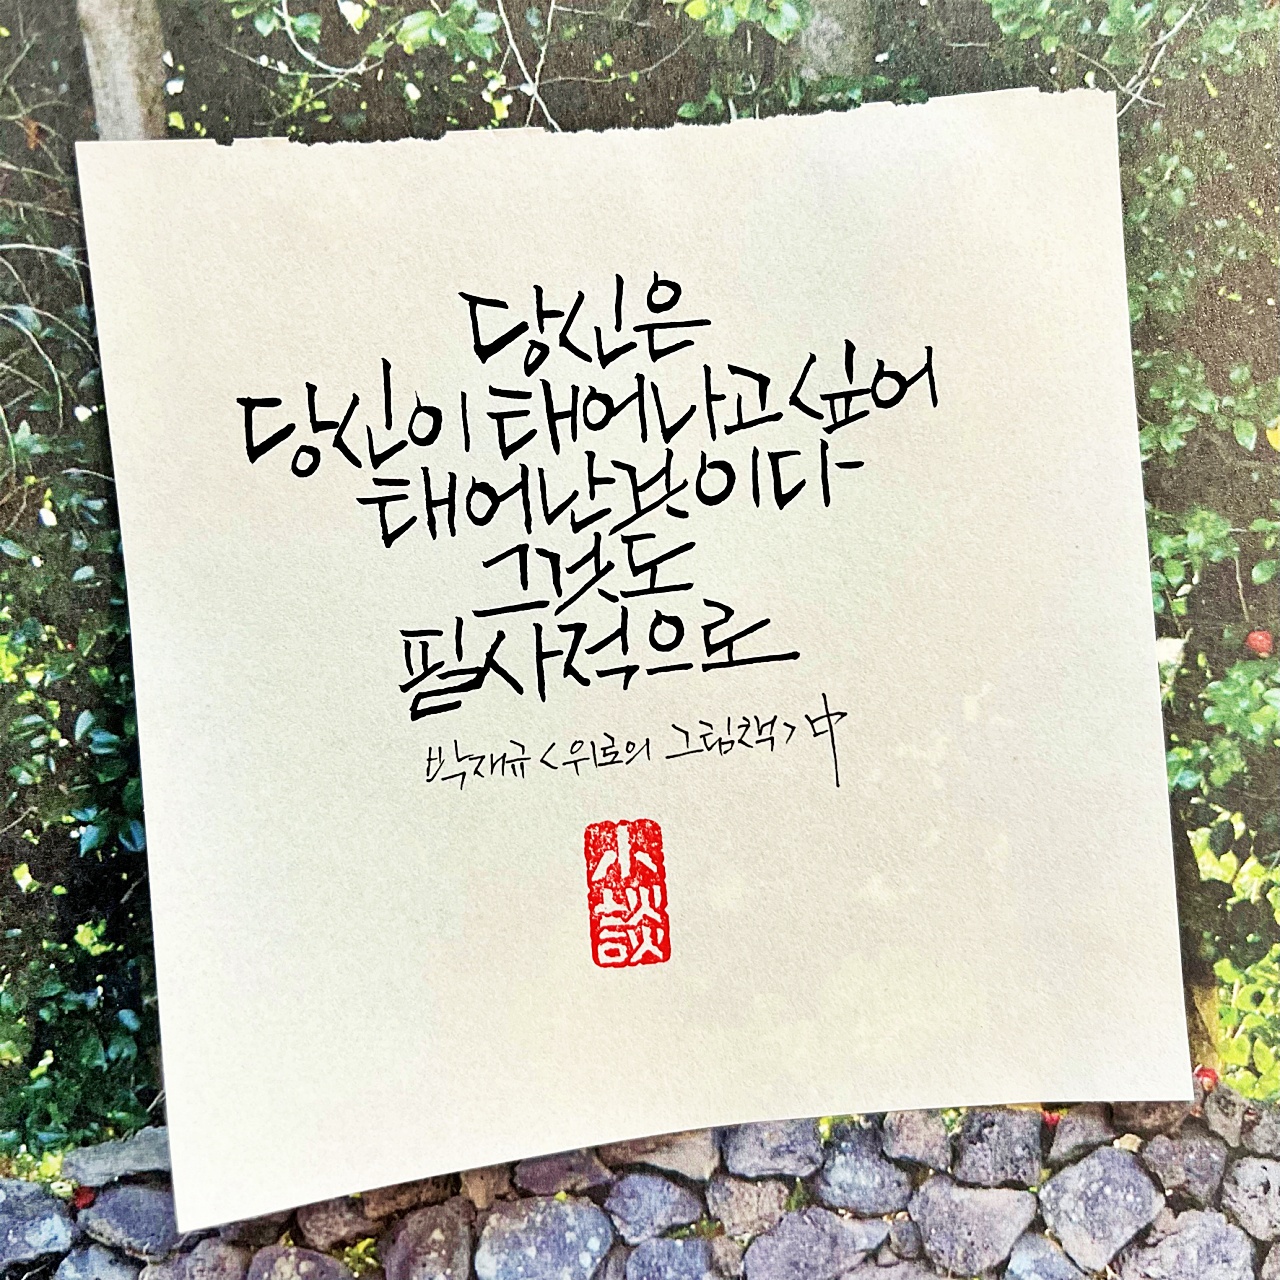 당신은
당신이 태어나고 싶어
태어난 것이다
그것도
필사적으로
박재규 <위로의 그림책> 中
小
談